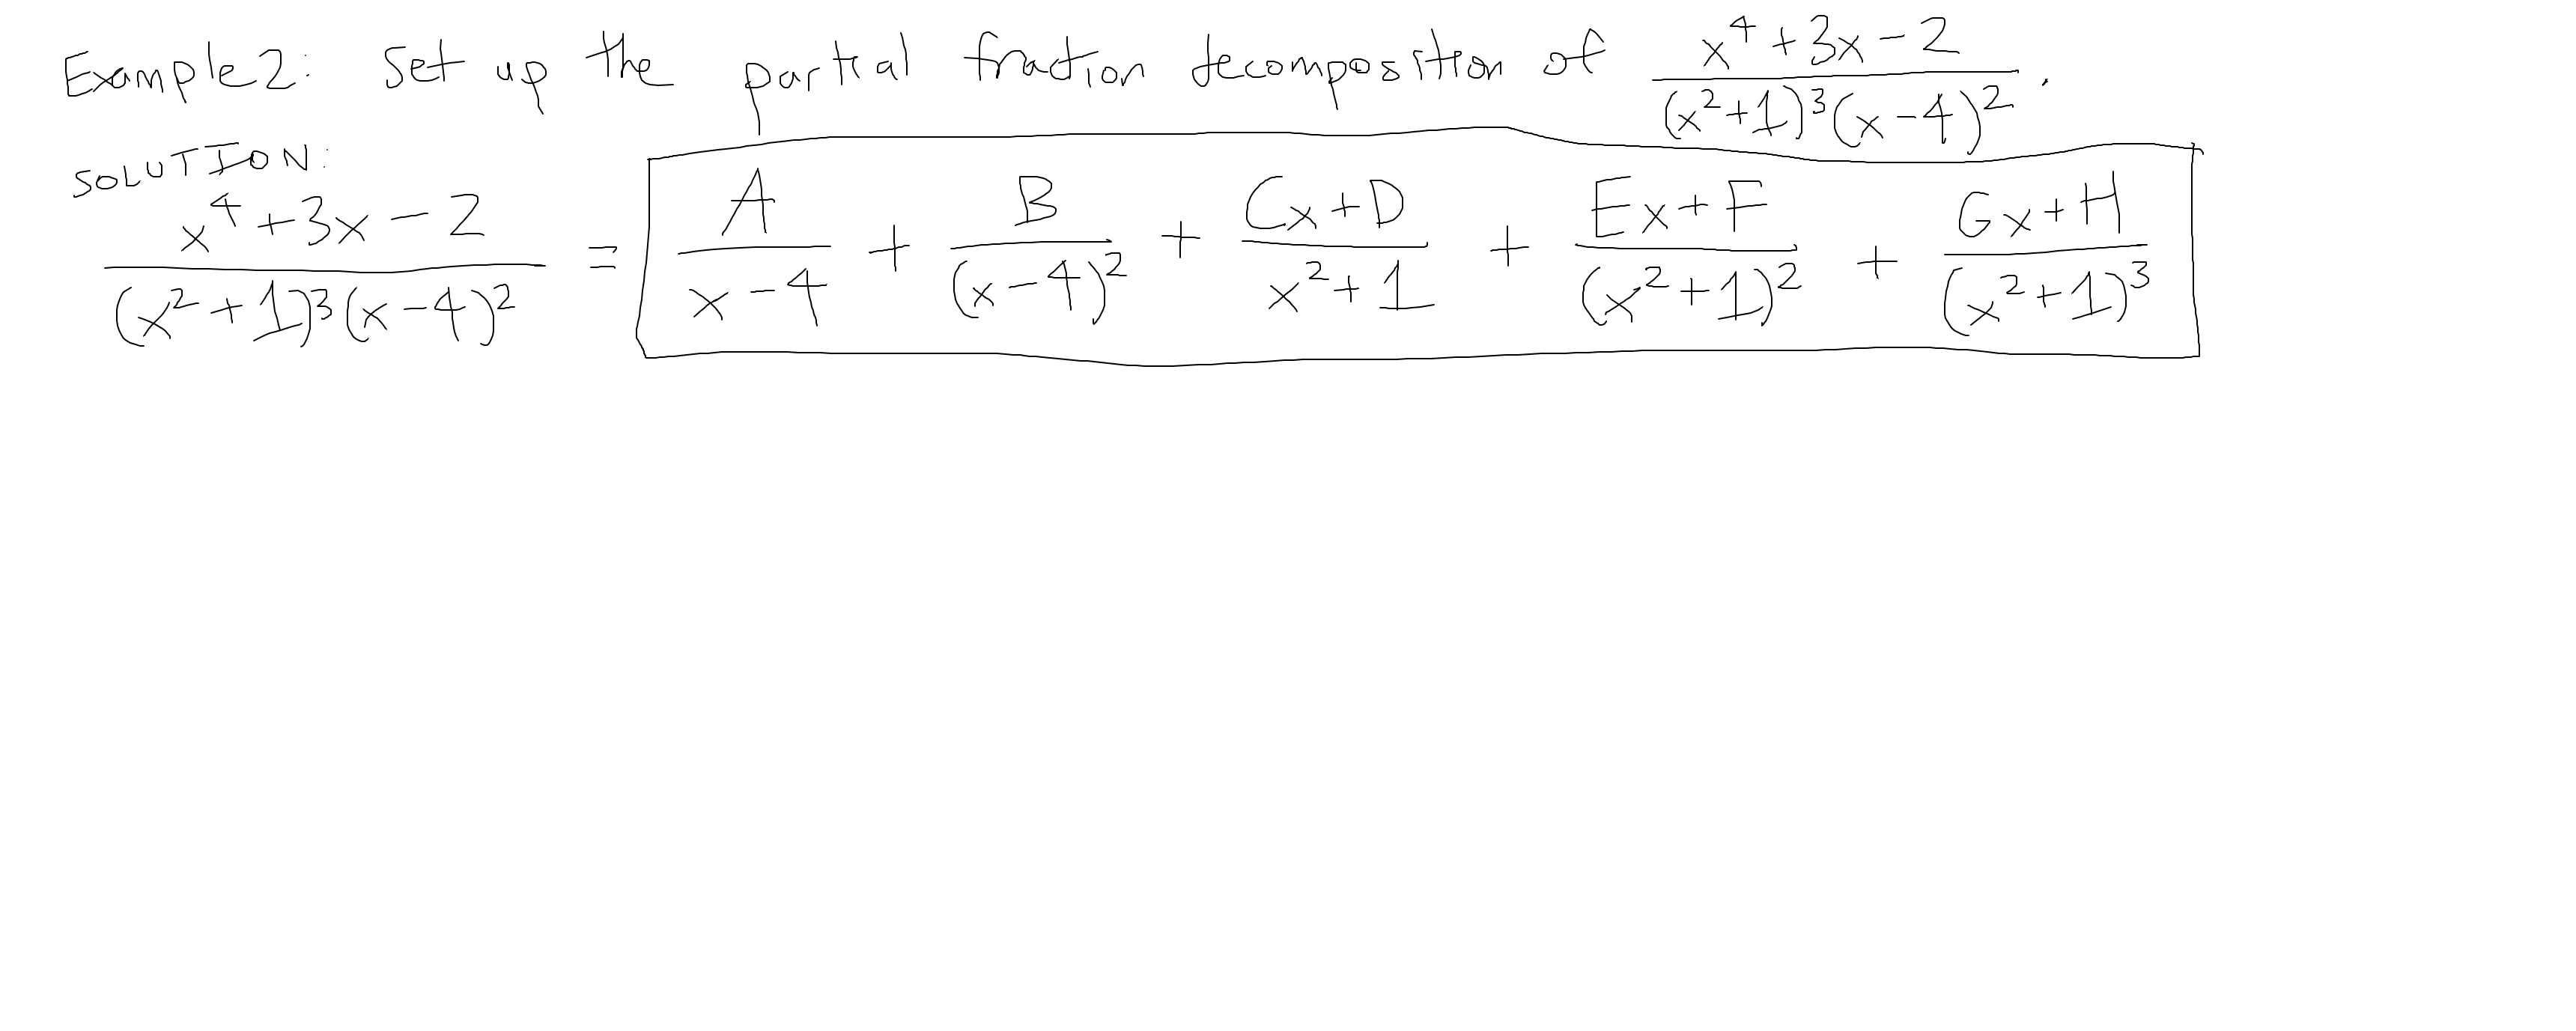 Example 2: Set up the partial fraction decomposition of \frac{x^4+3x-2}{(x^2+1)^3(x-4)^2}.
SOLUTION:
\frac{x^4+3x-2}{(x^2+1)^3(x-4)^2} = \frac{A}{x-4} + \frac{B}{(x-4)^2} + \frac{Cx+D}{x^2+1} + \frac{Ex+F}{(x^2+1)^2} + \frac{Gx+H}{(x^2+1)^3}